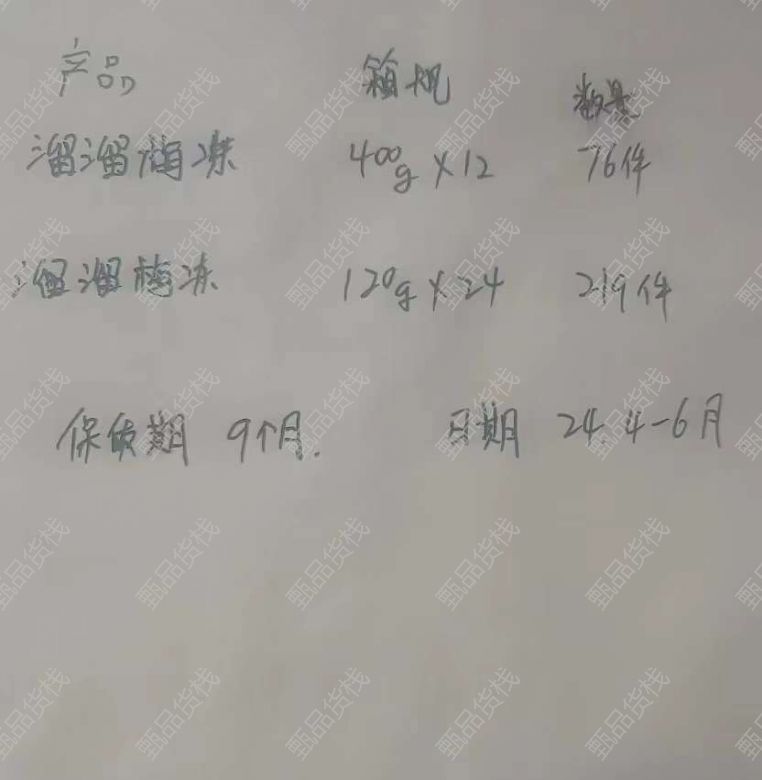 产品 箱规 数量
溜溜梅冻 400g×12 76件
溜溜梅冻 120g×24 219件
保质期 9个月. 日期 24.4-6月
甄品货栈